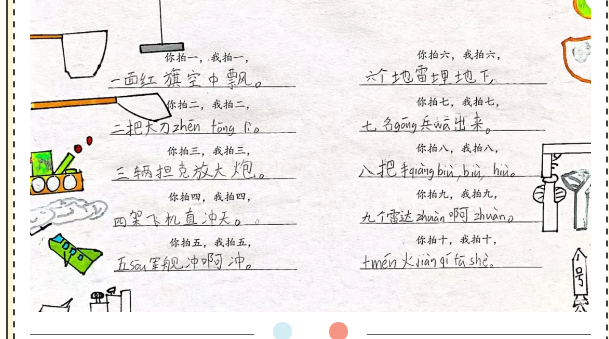 你拍一，我拍一，
一面红旗空中飘。
你拍二，我拍二，
二把大刀zhēn fōng lì。
你拍三，我拍三，
三辆担克放大炮。
你拍四，我拍四，
四架飞机直冲天。
你拍五，我拍五，
五sōu军舰冲啊冲。
你拍六，我拍六，
六个地雷埋地下
你拍七，我拍七，
七名gōng兵wā出来。
你拍八，我拍八，
八把手qiāng biù, biù, biù。
你拍九，我拍九，
九个雷达zhuàn啊zhuàn。
你拍十，我拍十，
十mén火jiàn qí fā shè。
号